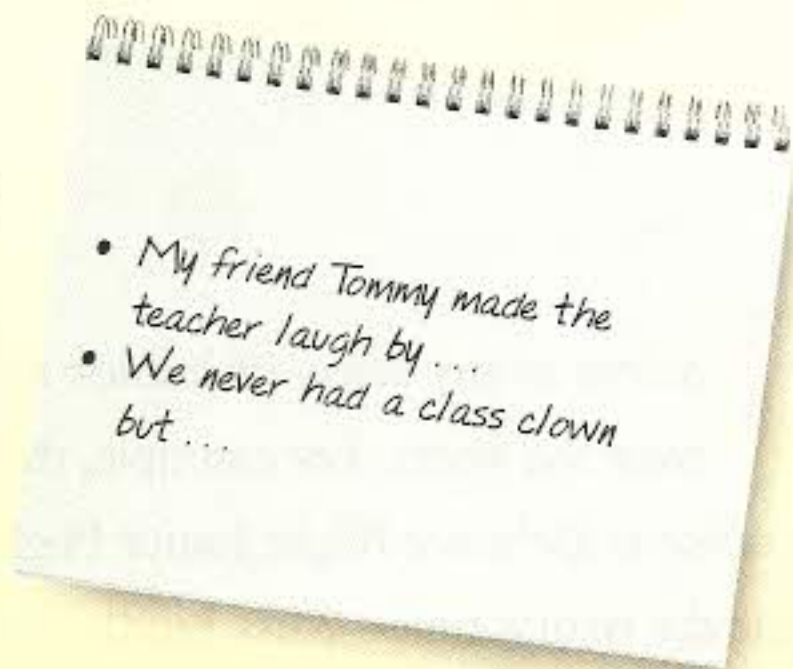 • My friend Tommy made the
teacher laugh by...
• We never had a class clown
but...